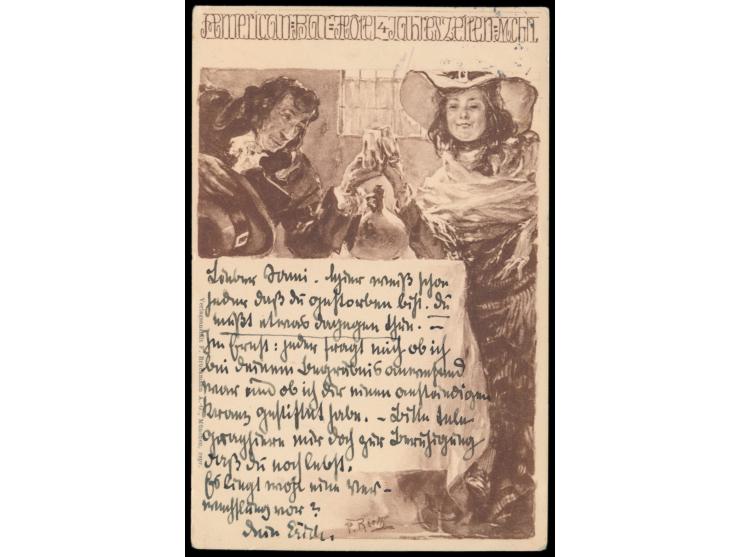 American=Bar=Hotel 4 Jahreszeiten=Mchn.
Lieber Sami. Leider weiß schon
jeder daß du gestorben bist. Du
mußt etwas dagegen thun. —
Im Ernst: jeder fragt mich ob ich
bei deinem Begräbnis anwesend
war und ob ich dir einen anständigen
Kranz gestiftet habe. — Bitte tele-
graphiere mir doch zur Beruhigung
daß du noch lebst.
Es liegt wohl eine Ver-
wechslung vor?
Dein
Verlagsanstalt F. Bruckmann A.-G., München,